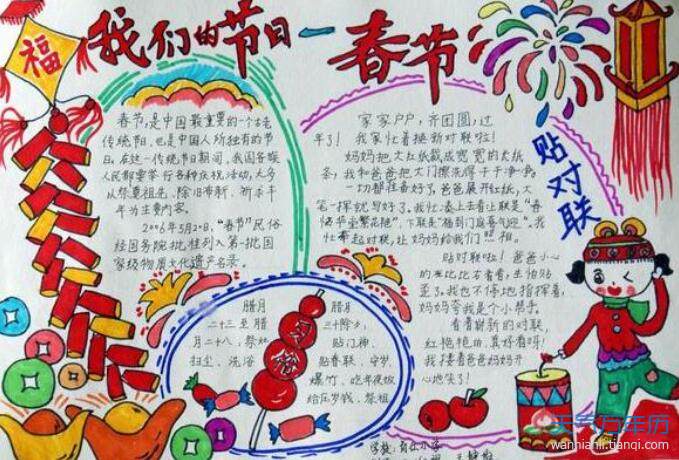 福
我们的节日—春节
春节,是中国最重要的一个古老
传统节日,也是中国人所独有的节
日。在这一传统节日期间,我国各族
人民都要举行各种庆祝活动,大多
以祭奠祖先、除旧布新、祈求丰
年为主要内容。
2006年5月20日,"春节"民俗
经国务院批准列入第一批国
家级物质文化遗产名录。
家家户户,齐团圆,过
年了!我家忙着换新对联啦!
妈妈把大红纸裁成宽宽的长纸
条,我和爸爸把大门擦洗得干干净净,
一切都准备好了,爸爸展开红纸,大
笔一挥就写好了。我忙凑上去看
贴对联
贴对联啦!爸爸小心
妈妈夸我是个小帮手。
看着崭新的对联,
红艳艳的,真好看呀!
我搂着爸爸妈妈开
心地笑了!
腊月
二十三至腊
月二十八,祭灶
扫尘、洗浴
腊月
三十除夕,
贴门神、
贴春联、守岁、
爆竹、吃年夜饭
给压岁钱、祭祖
天气万年历
wannianli.tianqi.com